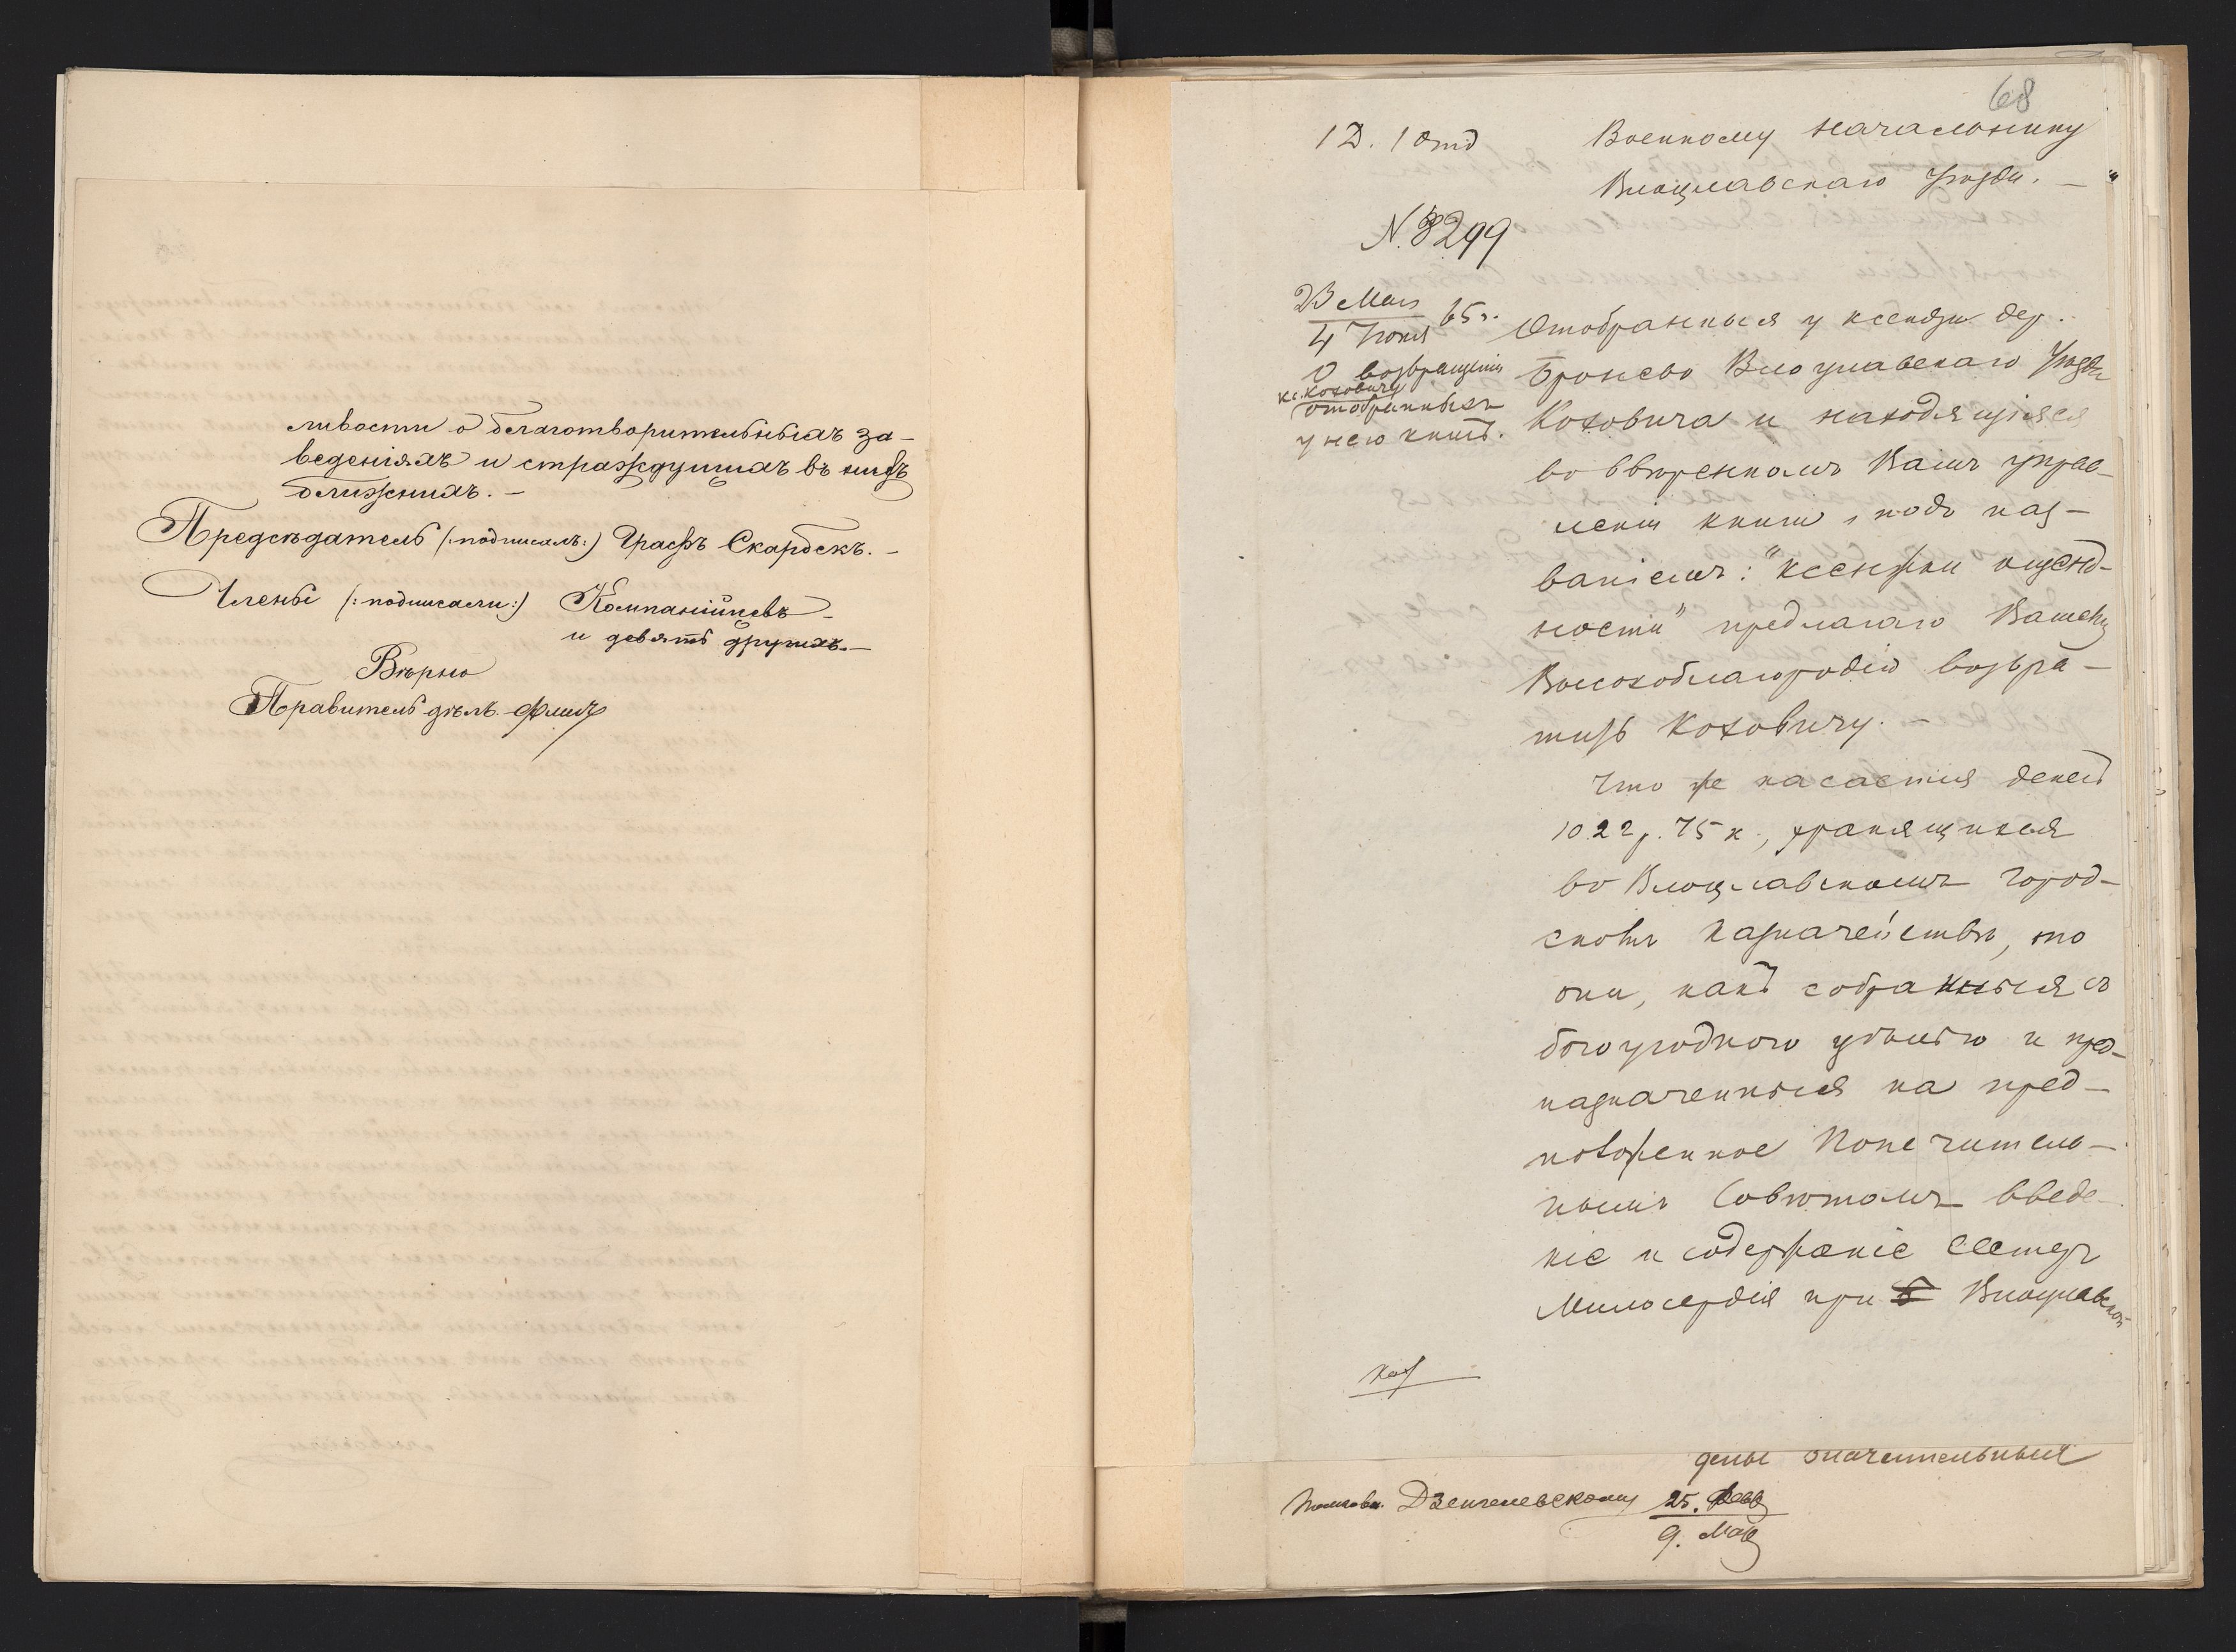 ливости о благотворительныхъ за-
веденіяхъ и страждущихъ въ нихъ
ближнихъ. -
Предсѣдатель (:подписалъ:) Графъ Скарбекъ. -
Члены (:подписали:) Компанійцевъ -
и девять другихъ. -
Вѣрно
Правитель дѣлъ
68
1 Д. 1 Отд
Военному Начальнику
Влоцлавскаго Уѣзда. -
N. 3299
23 Мая
4 Іюня 65 г.
О возвращеніи
кс. Коховичу
отобранныхъ
у него книгъ.
Отобранныя у ксендза дер.
Бронево Влоцлавскаго Уѣзда
Коховича и находящіяся
во ввѣренномъ Вамъ управ-
леніи книги, подъ наз-
ваніемъ: "ксенжки
" предлагаю Вашему
Высокоблагородію возвра-
тить Коховичу. -
Что же касается денегъ
1022 р. 75 к., хранящихся
во Влоцлавскомъ Город-
скомъ Казначействѣ, то
они, какъ собранныя съ
богоугодною цѣлью и пред-
назначенныя на пред-
положенное Попечитель-
нымъ Совѣтомъ введе-
ніе и содержаніе Сестеръ
Милосердія при Влоцлавской
значительныя
Дзенгелевскому 25. Февр
9. Мар